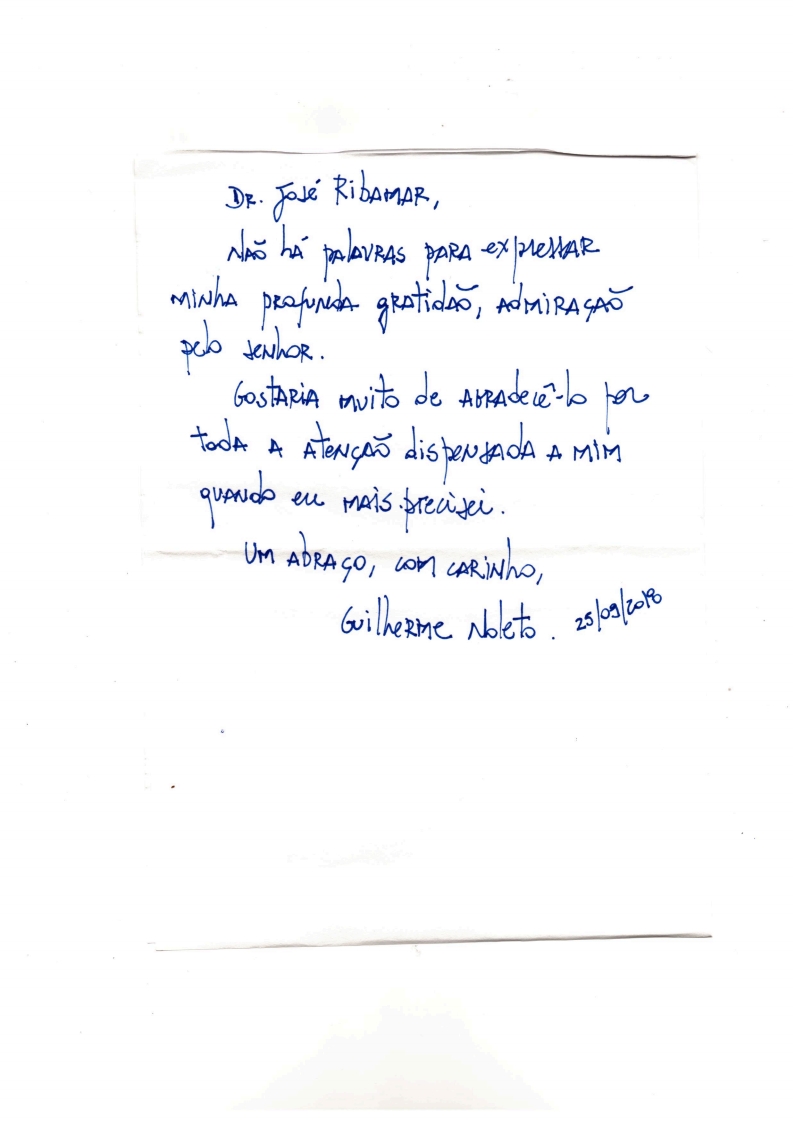 Dr. José Ribamar,
Não há palavras para expressar
minha profunda gratidão, admiração
pelo senhor.
Gostaria muito de agradecê-lo por
toda a atenção dispensada a mim
quando eu mais precisei.
Um abraço, com carinho,
Guilherme Noleto. 25/09/2018